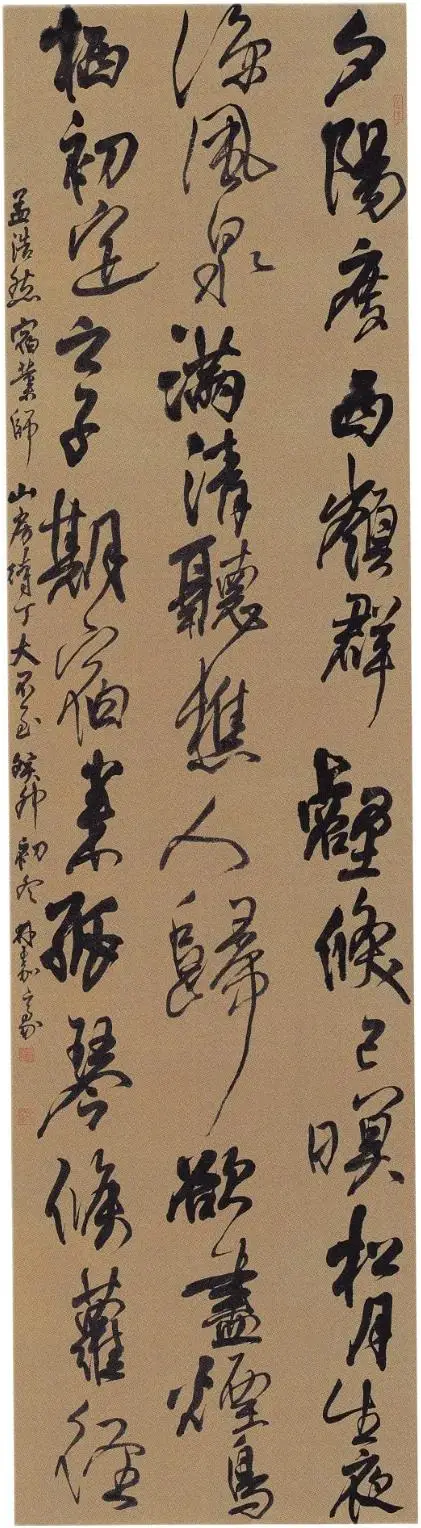 夕陽度西嶺群壑倏已暝松月生夜
涼風泉滿清聽樵人歸欲盡煙鳥
栖初定之子期宿來孤琴候蘿徑
孟浩然宿業師山房待丁大不至癸卯初冬